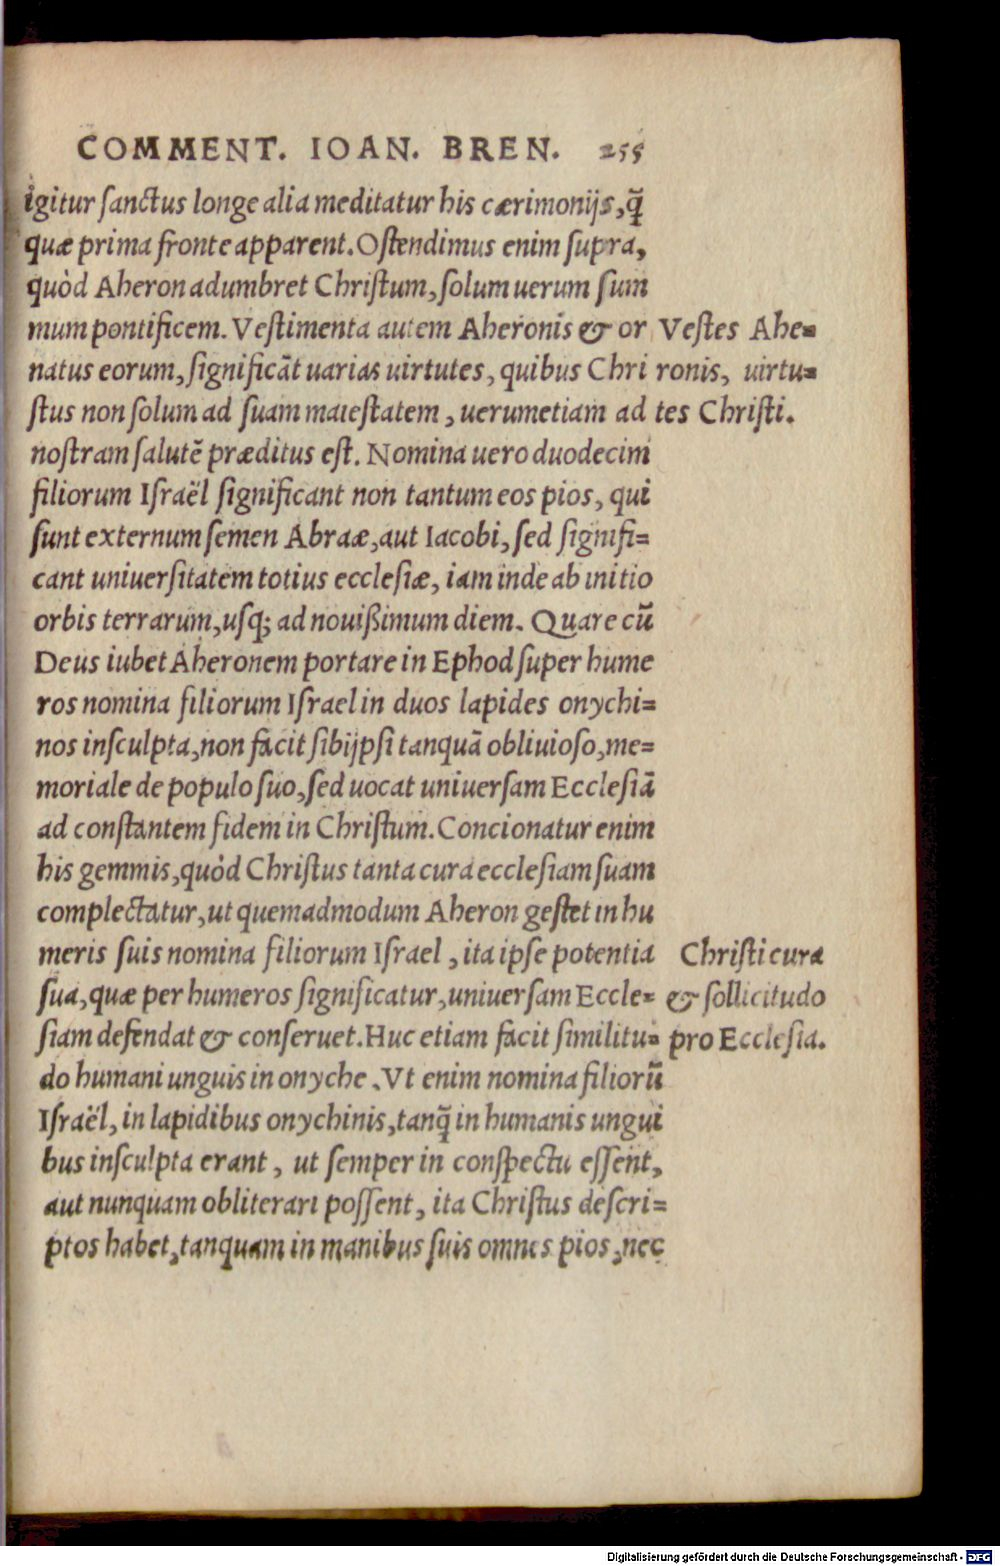 COMMENT. IOAN. BREN. 255
igitur sanctus longe alia meditatur his cærimonijs, q̃
quæ prima fronte apparent. Ostendimus enim supra,
quòd Aheron adumbret Christum, solum uerum sum
mum pontificem. Vestimenta autem Aheronis & or
natus eorum, significãt uarias uirtutes, quibus Chri
stus non solum ad suam maiestatem, uerumetiam ad
Vestes Ahe=
ronis, uirtu=
tes Christi.
nostram salutẽ præditus est. Nomina uero duodecim
filiorum Israël significant non tantum eos pios, qui
sunt externum semen Abraæ, aut Iacobi, sed signifi=
cant uniuersitatem totius ecclesiæ, iam inde ab initio
orbis terrarum, usq; ad nouißimum diem. Quare cũ
Deus iubet Aheronem portare in Ephod super hume
ros nomina filiorum Israel in duos lapides onychi=
nos insculpta, non facit sibijpsi tanquã obliuioso, me=
moriale de populo suo, sed uocat uniuersam Ecclesiã
ad constantem fidem in Christum. Concionatur enim
his gemmis, quòd Christus tanta cura ecclesiam suam
complectatur, ut quemadmodum Aheron gestet in hu
meris suis nomina filiorum Israel, ita ipse potentia
sua, quæ per humeros significatur, uniuersam Eccle=
siam defendat & conseruet. Huc etiam facit similitu=
Christi cura
& sollicitudo
pro Ecclesia.
do humani unguis in onyche. Vt enim nomina filiorũ
Israël, in lapidibus onychinis, tanq̃ in humanis ungui
bus insculpta erant, ut semper in conspectu essent,
aut nunquam obliterari possent, ita Christus descri=
ptos habet, tanquam in manibus suis omnes pios, nec
Digitalisierung gefördert durch die Deutsche Forschungsgemeinschaft - DFG